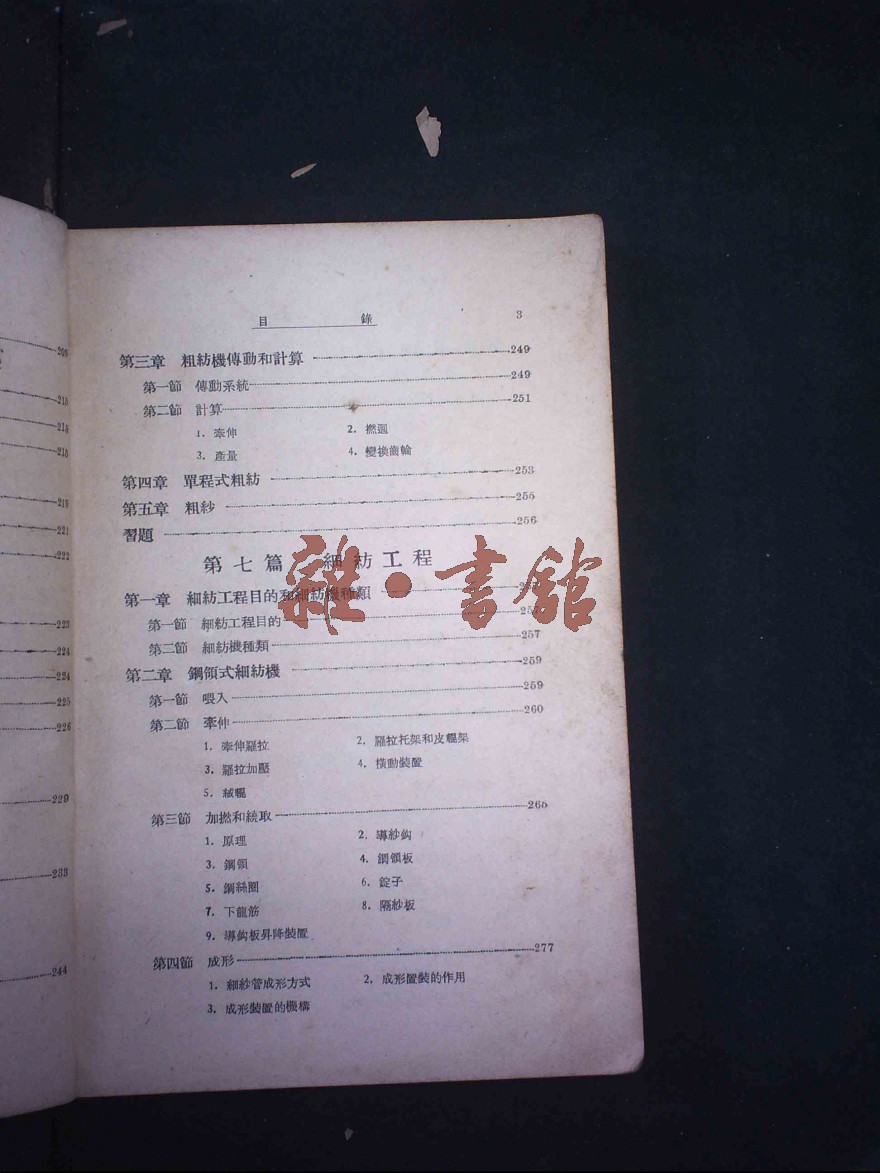 206
218
218
218
219
221
222
223
224
224
225
226
229
233
244
目 錄 3
第三章 粗紡機傳動和計算 249
第一節 傳動系統 249
第二節 計算 251
1. 牽伸 2. 撚迴
3. 產量 4. 變換齒輪
第四章 單程式粗紡 253
第五章 粗紗 255
習題 256
第七篇 細紡工程
第一章 細紡工程目的和細紡機種類
第一節 細紡工程目的 257
第二節 細紡機種類 257
第二章 鋼領式細紡機 259
第一節 喂入 259
第二節 牽伸 260
1. 牽伸羅拉 2. 羅拉托架和皮輥架
3. 羅拉加壓 4. 橫動裝置
5. 絨輥
第三節 加撚和繞取 265
1. 原理 2. 導紗鈎
3. 鋼領 4. 鋼領板
5. 鋼絲圈 6. 錠子
7. 下龍筋 8. 隔紗板
9. 導鈎板昇降裝置
第四節 成形 277
1. 細紗管成形方式 2. 成形置裝的作用
3. 成形裝置的機構
雜·書館